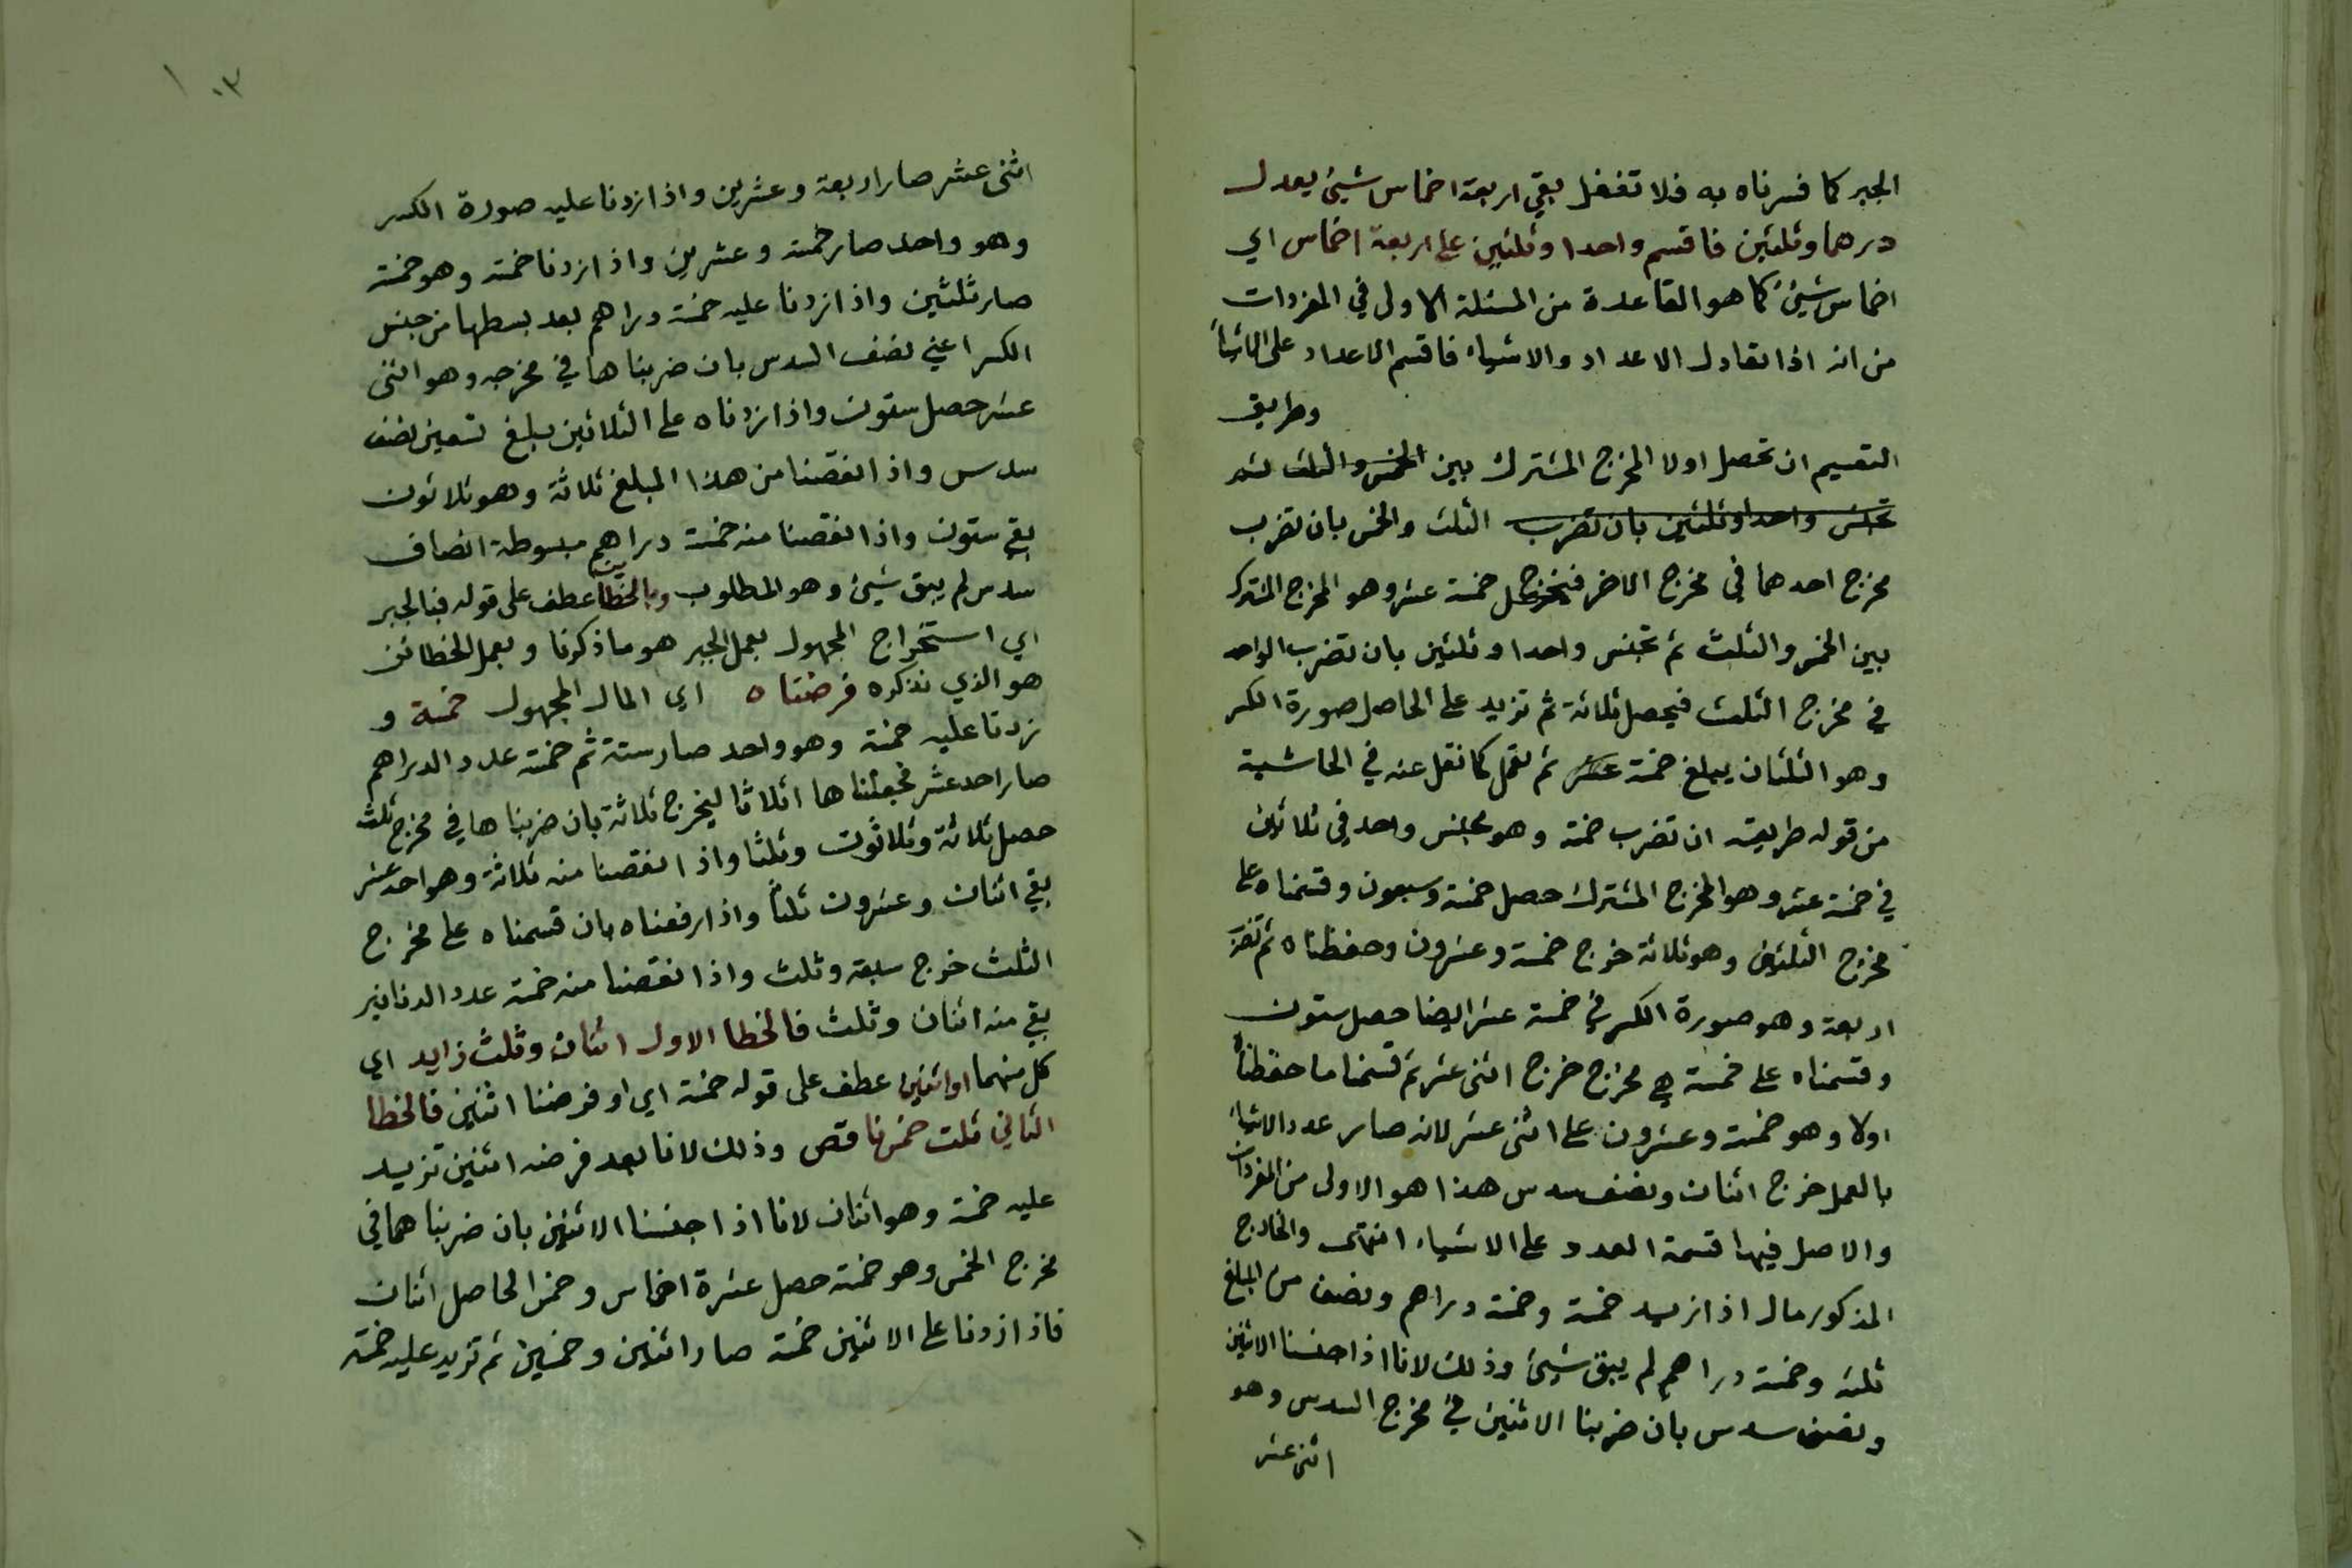 الجبر كما فسرناه به فلا تغفل بقي اربعة اخماس شيئ يعدل
درهما وثلثين فاقسم واحدا وثلثين على اربعة اخماس اي
اخماس شيئ كما هو القاعدة من المسئلة الاولى في المفردات
من انه اذا تعادل الاعداد والاشياء فاقسم الاعداد على الاشياء
وطريق
التقسيم ان تحصل اولا المخرج المشترك بين الخمس والثلث ثم
تجنس واحدا وثلثين بان تضرب الثلث والخمس بان تضرب
مخرج احدهما في مخرج الاخر خمسة عشر وهو المخرج المشترك
بين الخمس والثلث ثم تجنس واحدا وثلثين بان تضرب الواحد
في مخرج الثلث فيحصل ثلاثة ثم تزيد على الحاصل صورة الكسر
وهو الثلثان يبلغ خمسة عشر ثم تعمل كما نقل عنه في الحاشية
من قوله طريقه ان تضرب خمسة وهو مجنس واحد في ثلاثين
في خمسة عشر وهو المخرج المشترك حصل خمسة وسبعون وقسمناه على
مخرج الثلثين وهو ثلاثة خرج خمسة وعشرون وحفظناه ثم تضرب
اربعة وهو صورة الكسر في خمسة عشر ايضا حصل ستون
وقسمناه على خمسة هي مخرج خرج اثنى عشر ثم قسمنا ما حفظناه
اولا وهو خمسة وعشرون على اثنى عشر لانه صار عدد الاشياء
بالعمل خرج اثنان ونصف سدس هذا هو الاولى من المفردات
والاصل فيها قسمة العدد على الاشياء انتهى والخارج
المذكور مال اذا زيد خمسة وخمسة دراهم ونصف من المبلغ
ثلثه وخمسة دراهم لم يبق شيئ وذلك لانا اذا جنسنا الاثنين
ونصف سدس بان ضربنا الاثنين في مخرج السدس وهو
اثنى عشر
١٣
اثنى عشر صار اربعة وعشرين واذا زدنا عليه صورة الكسر
وهو واحد صار خمسة وعشرين واذا زدنا خمسة وهو خمسة
صار ثلثين واذا زدنا عليه خمسة دراهم بعد بسطها من جنس
الكسر اعني نصف السدس بان ضربناها في مخرجه وهو اثنى
عشر حصل ستون واذا زدناه على الثلاثين يبلغ تسعين نصف
سدس واذا انقصنا من هذا المبلغ ثلاثة وهو ثلاثون
بقي ستون واذا نقصنا منه خمسة دراهم مبسوطة انصاف
سدس لم يبق شيئ وهو المطلوب وبالخطأين عطف على قوله فبالجبر
اي استخراج المجهول بعمل الجبر هو ما ذكرنا وبعمل الخطائن
هو الذي نذكره فرضناه اي المال المجهول خمسة و
زدنا عليه خمسة وهو واحد صار ستة ثم خمسة عدد الدراهم
صار احد عشر فجعلناها اثلاثا ليخرج ثلاثة بان ضربناها في مخرج ثلث
حصل ثلاثة وثلاثون وثلثا واذا انقصنا منه ثلاثة وهو احد عشر
بقي اثنان وعشرون ثلثا واذا رفعناه بان قسمناه على مخرج
الثلث خرج سبعة وثلث واذا نقصنا منه خمسة عدد الدنانير
بقي منه اثنان وثلث فالخطا الاول اثنان وثلث زايد اي
كل منهما او اثنين عطف على قوله خمسة اي او فرضنا اثنين فالخطا
الثاني ثلث خمس ناقص وذلك لانا بعد فرضه اثنين تزيد
عليه خمسة وهو اثنان لانا اذا جنسنا الاثنين بان ضربناهما في
مخرج الخمس وهو خمسة حصل عشرة اخماس وخمس الحاصل اثنان
فاذا زدنا على الاثنين خمسة صار اثنين وخمسين ثم تزيد عليه خمسة